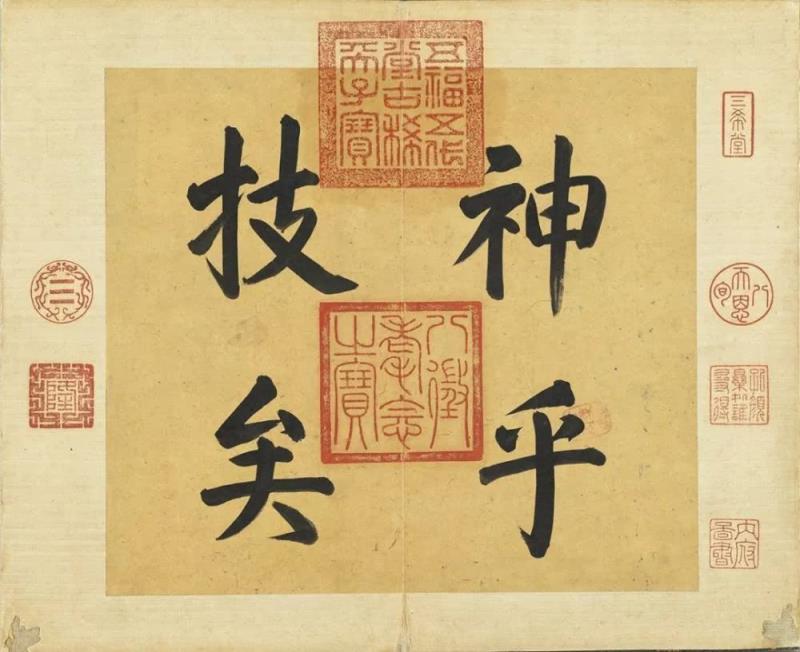 三希堂
內府圖書
神乎
五福五代
堂古稀
天子寶
八徵
耄念
之寶
技矣
隆